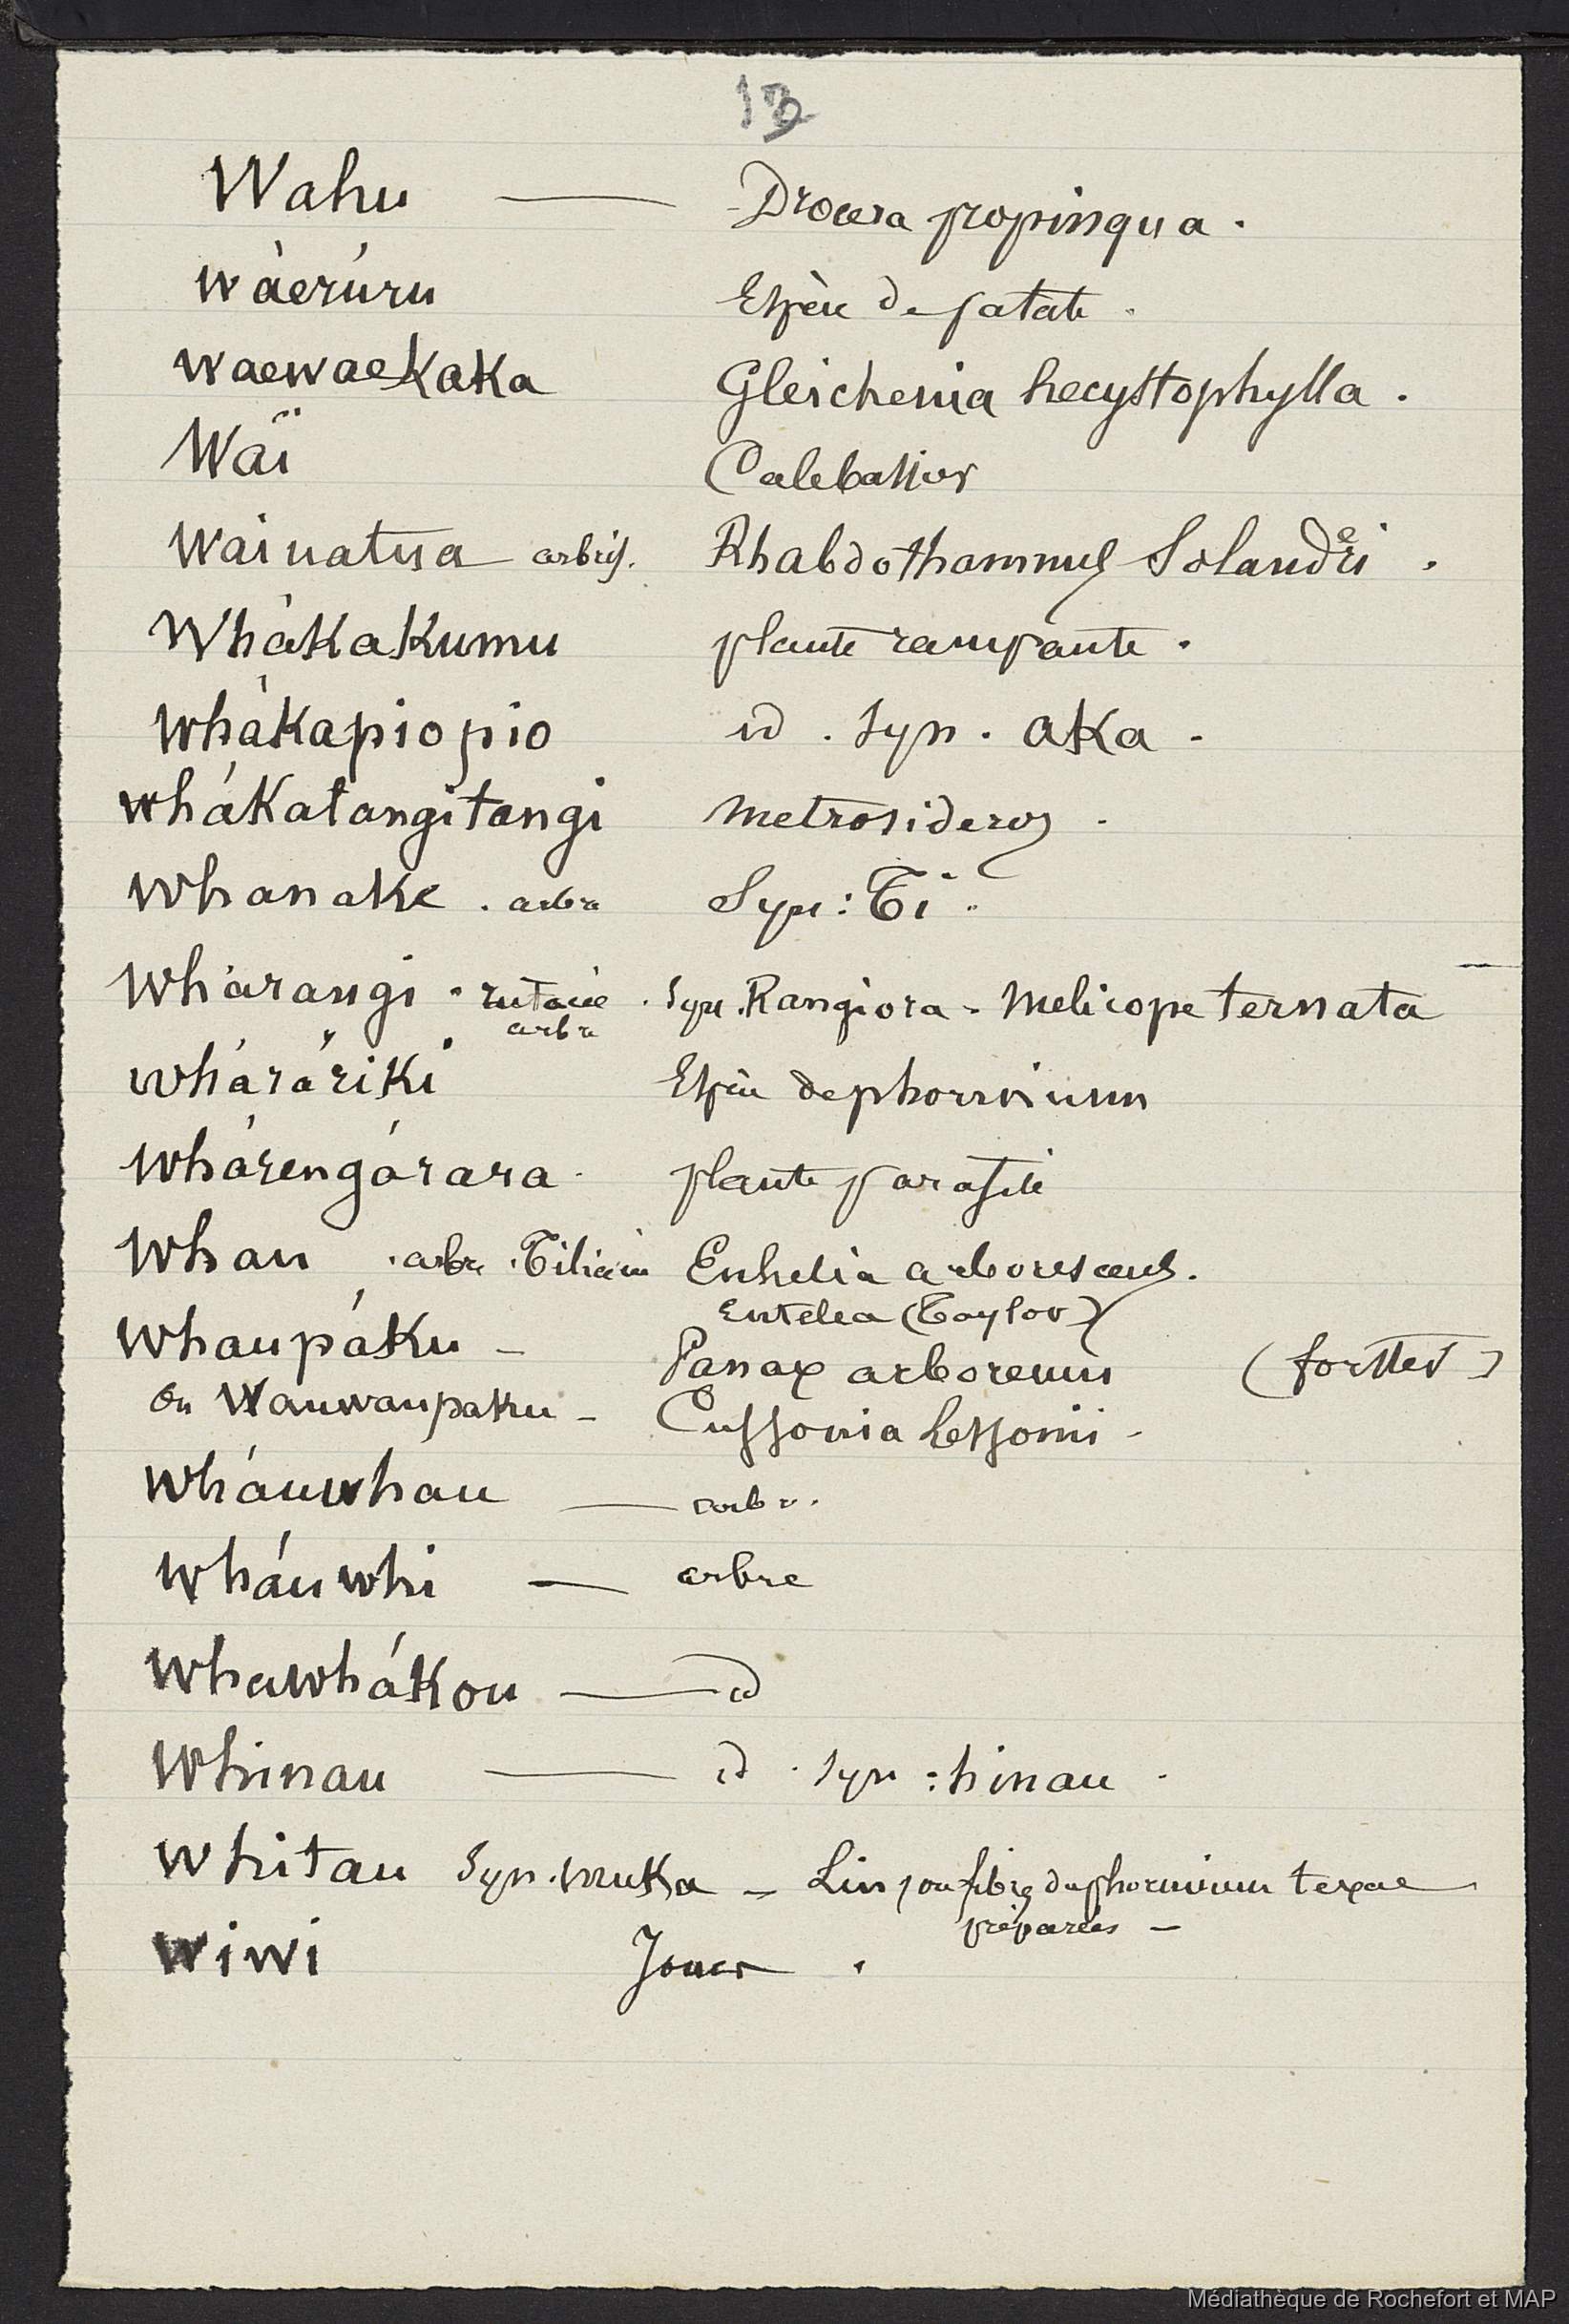 13
Wahu — Drocera propinqua.
wàerúru Espèce de patate.
waewaekaka Gleichenia hecystophylla.
Waï Calebassier
Wainatua arbris. Rhabdothamnus Solanderi.
Whàkakumu plante rampante.
whàkapiopio id. syn. aka -
whákatangitangi metrosideros.
whanake. arbre Syn: Ti.
Whàrangi. rutacée arbre. Syn. Rangiora - Melicope ternata
whàráriki Espèce de phormium
whárengárara. plante parasite
Whau. arbre. Tiliacée Enhelia arborescens.
Entelea (Taylor)
Whaupáku - Panax arboreum (forster)
ou Wauwaupaku - Cussonia Lessonii -
wháuwhau — arbre.
wháuwhi — arbre
whawhákou — id
Whinau — id. syn: hinau -
whitau Syn. muka - Lin, ou fibres du phormium tenax
préparées -
wiwi Joncs.
Médiathèque de Rochefort et MAP